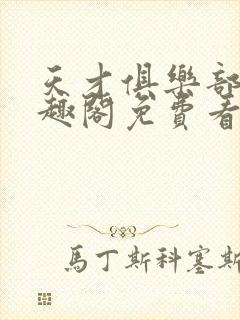 天才俱樂部
趣閣免費看
馬丁斯科塞斯